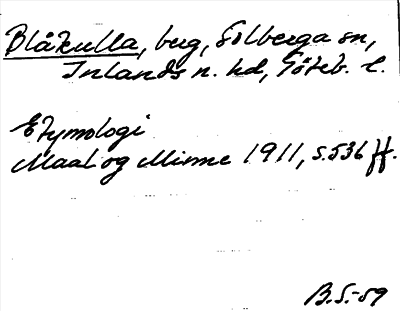 Blåkulla, berg, Solberga sn,
Inlands n. hd, Göteb. l.
Etymologi
Maal og Minne 1911, s. 536 ff.
B.S.-59